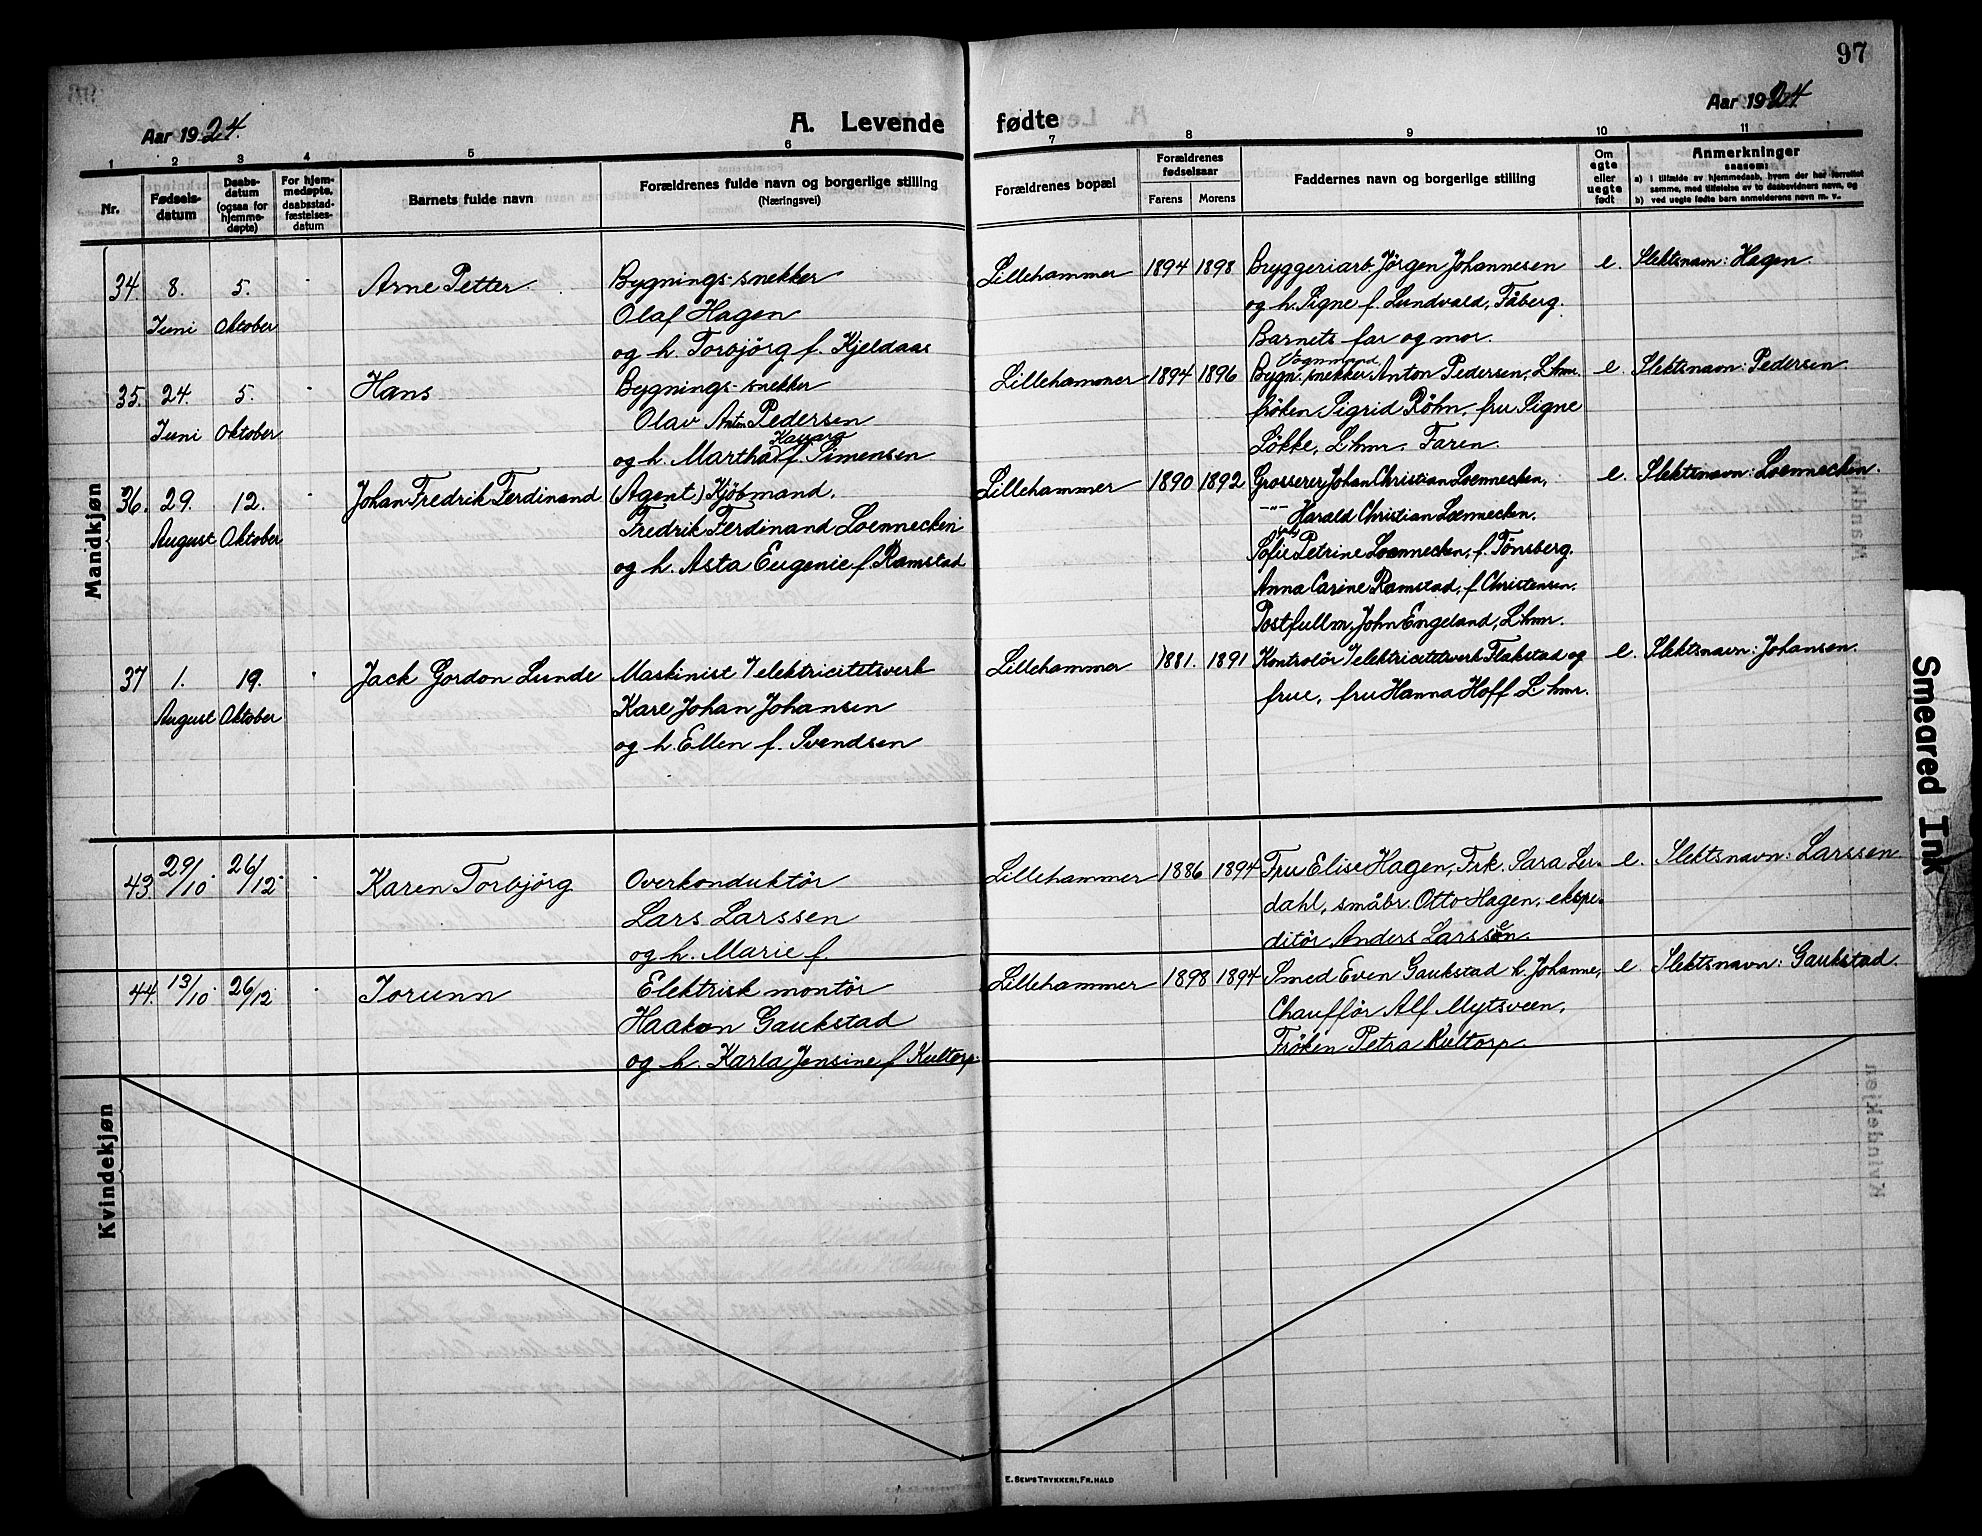 97
Aar 1924.
A. Levende fødte
Aar 1924
1 2 3 4 5 6 7 8 9 10 11
Nr.
Fødsels-
datum
Daabs-
datum
(ogsaa for
hjemme-
døpte)
For hjem-
medøpte,
daabsstad-
fæstelses-
datum
Barnets fulde navn
Forældrenes fulde navn og borgerlige stilling
(Næringsvei)
Forældrenes bopæl
Forældrenes
fødselsaar
Farens Morens
Faddernes navn og borgerlige stilling
Om
egte
eller
uegte
født
Anmerkninger
saasom:
a) i tilfælde av hjemmedaab, hvem der har forrettet
samme, med tilføielse av to daabsvidners navn, og
b) ved uegte fødte barn anmelderens navn m. v.
Mandkjøn
34. 8. Juni
5. Oktober
Arne Petter
Bygnings-snekker
Olaf Hagen
og h. Torbjörg f. Kjeldaas
Lillehammer 1894 1898
Bryggeriarb. Jörgen Johannesen
og h. Signe f. Lundvald, Fåberg.
Barnets far og mor.
e. Slektsnavn: Hagen.
35. 24. Juni
5. Oktober
Hans
Bygnings-snekker
Olav Anton Pedersen
Kasara
og h. Martha f. Simensen
Lillehammer 1894 1896
Vognmand
Bygn. snekker Anton Pedersen, L.hmr.
fröken Sigrid Röhn, fru Signe
Lökke, L.hmr. Faren.
e. Slektsnavn: Pedersen.
36. 29. August
12. Oktober
Johan Fredrik Ferdinand
(Agent) Kjöbmand.
Fredrik Ferdinand Loennecken
og h. Asta Eugenie f. Ramstad
Lillehammer 1890 1892
Grosserer Johan Christian Loennecken,
-"- Harald Christian Loennecken.
Sofie Petrine Loennecken, f. Tönsberg.
Anna Carine Ramstad, f. Christensen.
Postfullm. John Engeland, L.hmr.
e. Slektsnavn: Loennecken.
37 1. August
19. Oktober
Jack Gordon Lunde
Maskinist v/ elektricitetsverk
Karl Johan Johansen
og h. Ellen f. Svendsen
Lillehammer 1881. 1891
Kontrolör v/ elektricitetsverk Flakstad og
frue, fru Hanna Hoff L.hmr.
e. Slektsnavn: Johansen.
Kvindekjøn
43. 29/10 26/12
Karen Torbjörg
Overkonduktör
Lars Larssen
og h. Marie f.
Lillehammer 1886 1894
Fru Elise Hagen, Frk. Sara Ler-
dahl, småbr. Otto Hagen, ekspe-
ditör Anders Larssen.
e. Slektsnavn: Larssen
44. 13/10 26/12
Jorunn
Elektrisk montör
Haakon Gaukstad
og h. Karla Jensine f. Kultorp.
Lillehammer 1898 1894
Smed Even Gaukstad h. Johanne,
Chaufför Alf Mytsveen,
Fröken Petra Kultorp.
e Slektsnavn: Gaukstad.
E. SEM'S TRYKKERI, FR.HALD
Smeared Ink